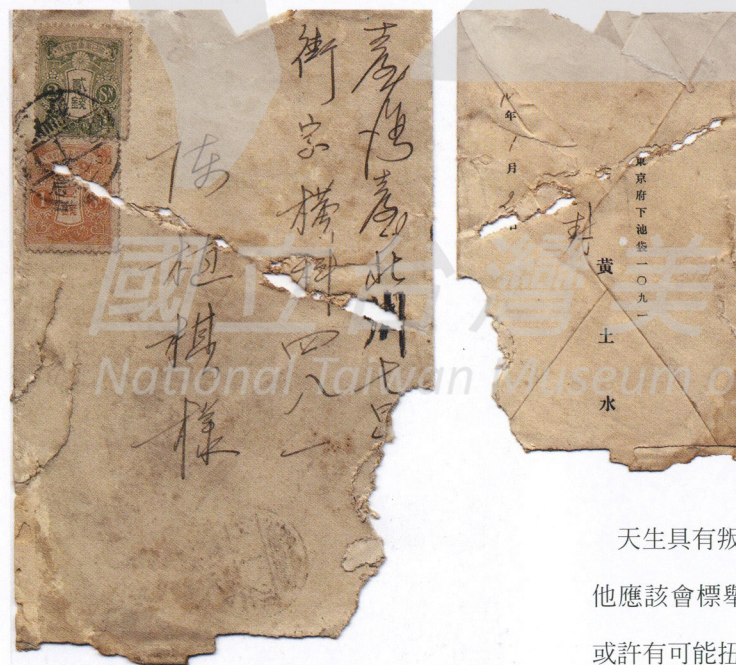 臺灣臺北州七星
街字橫科四八一
陳植棋樣
貳錢
年 月
東京府下池袋一〇九一
封
黃土水
國立台灣美
National Taiwan Museum o
天生具有叛
他應該會標舉
或許有可能扭